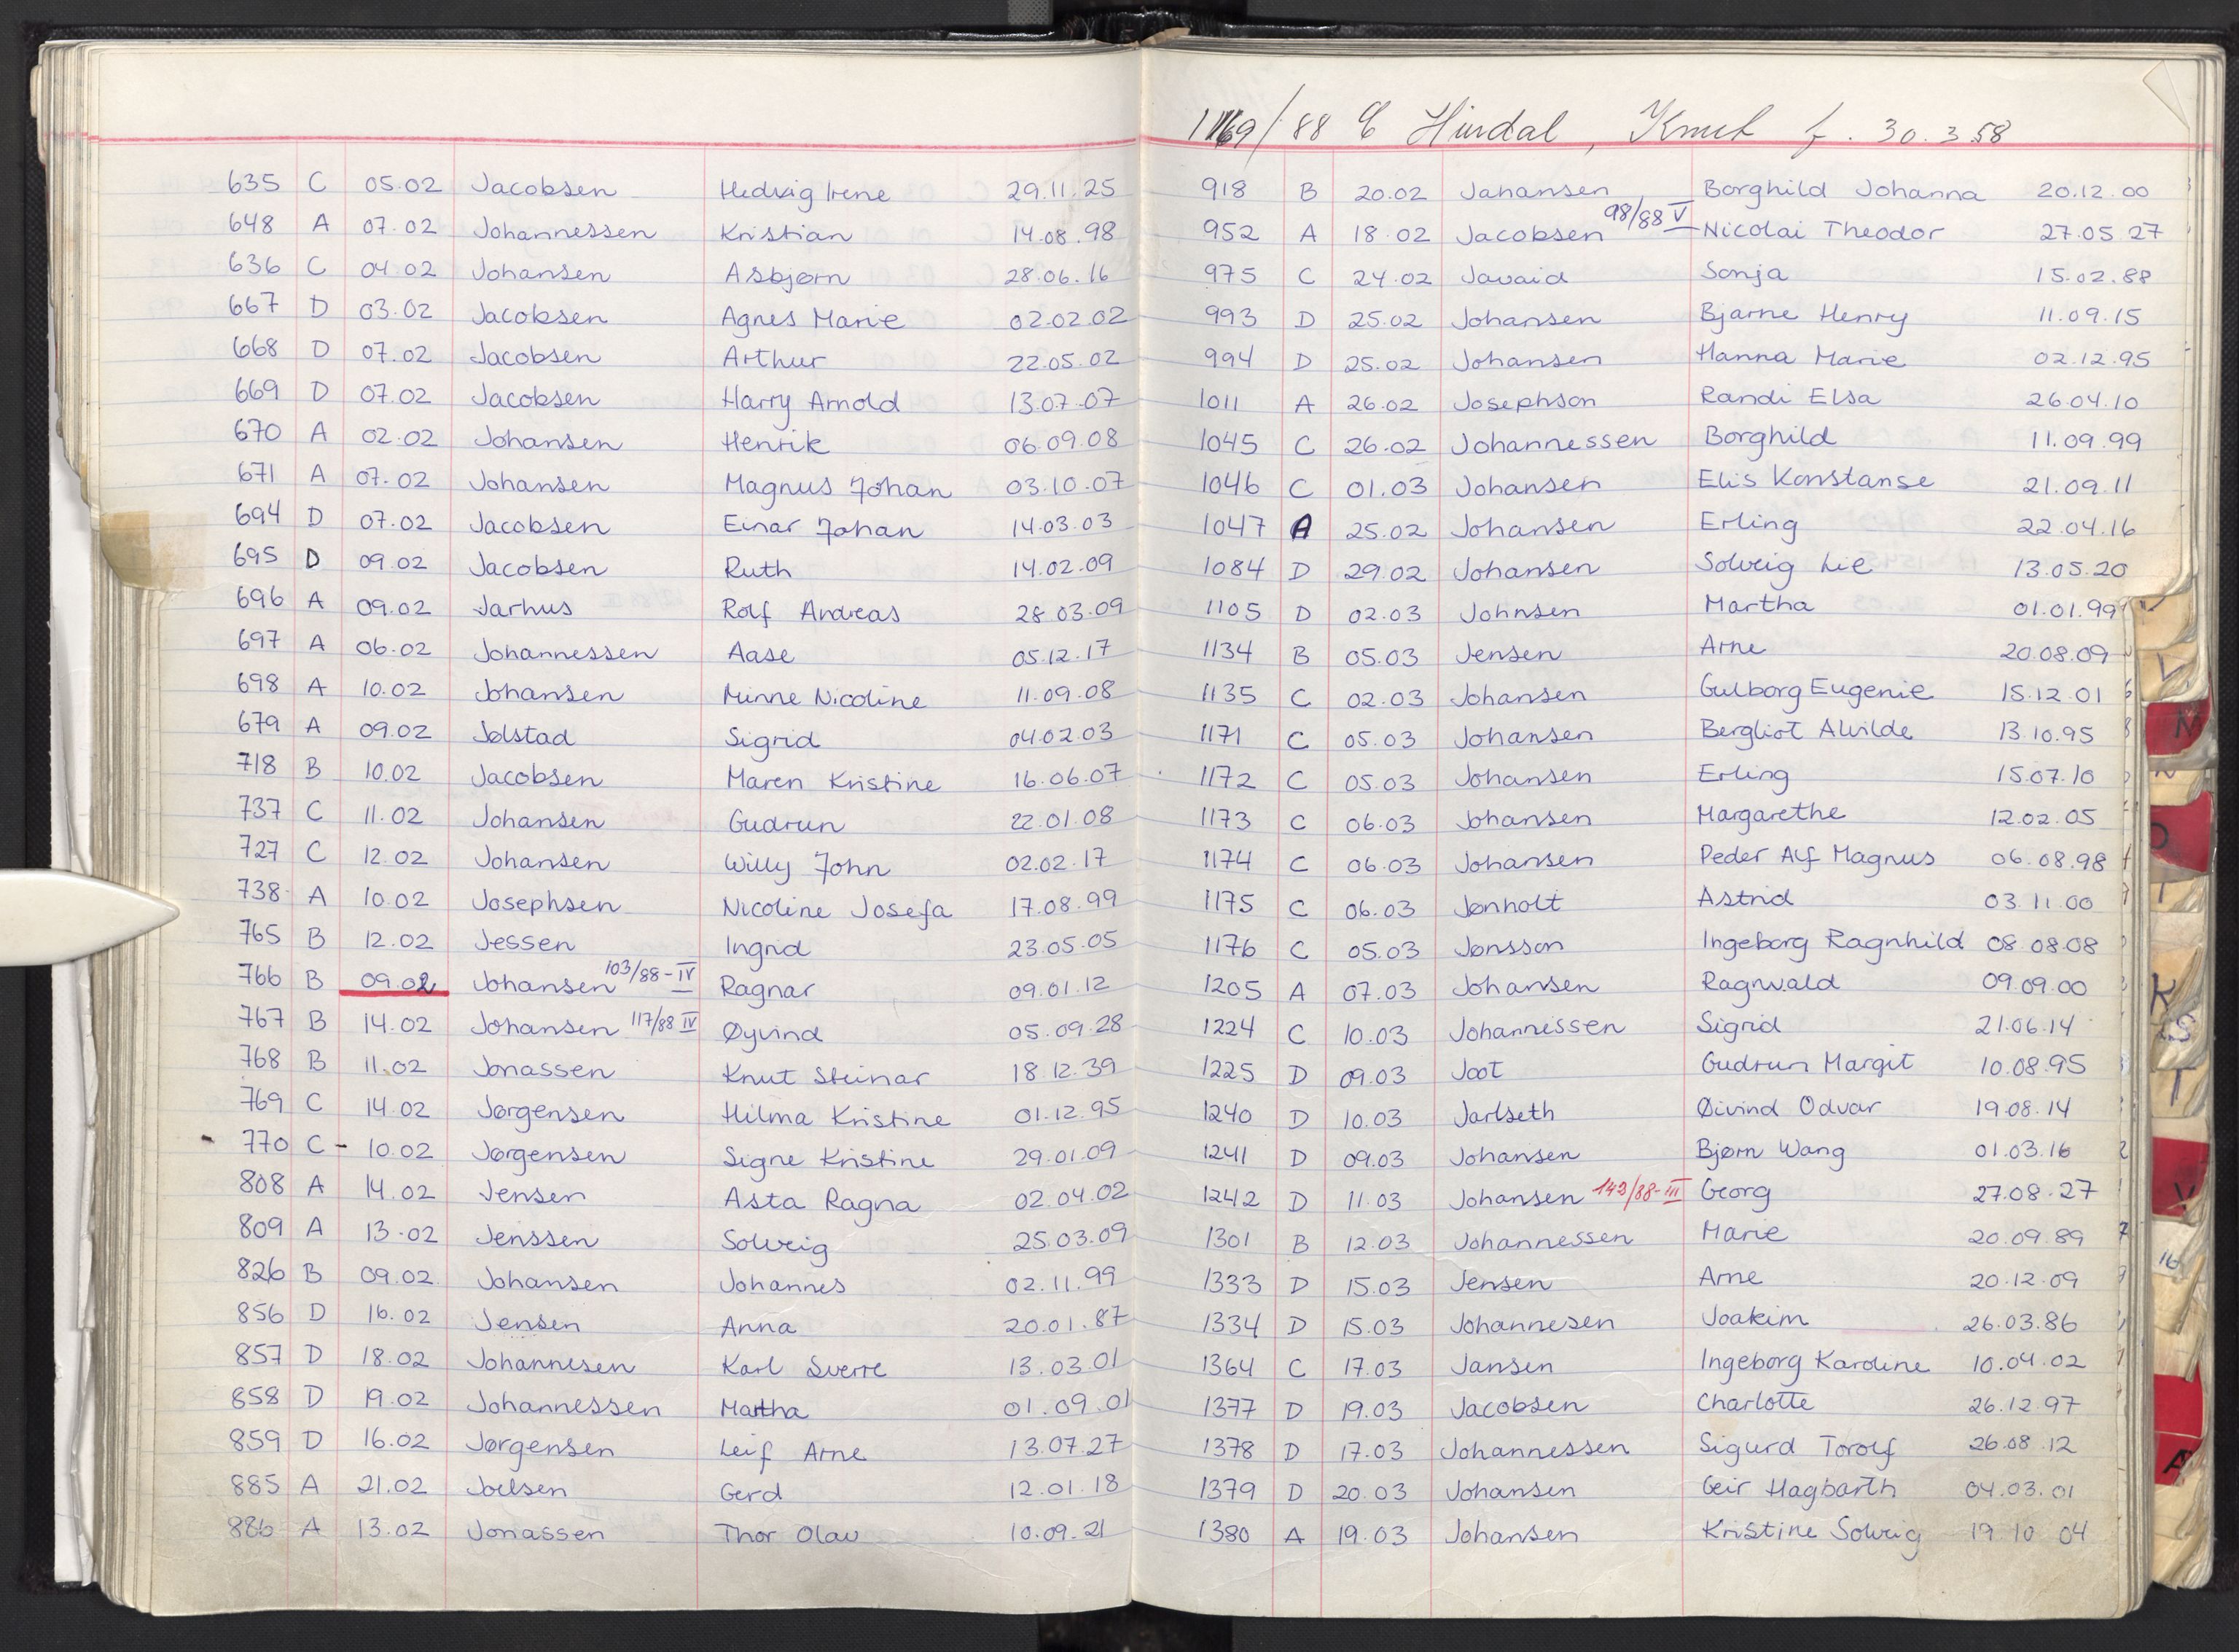 635 C 05.02 Jacobsen Hedvig Irene 29.11.25
648 A 07.02 Johannessen Kristian 14.08.98
636 C 04.02 Johansen Asbjørn 28.06.16
667 D 03.02 Jacobsen Agnes Marie 02.02.02
668 D 07.02 Jacobsen Arthur 22.05.02
669 D 07.02 Jacobsen Harry Arnold 13.07.07
670 A 02.02 Johansen Henrik 06.09.08
671 A 07.02 Johansen Magnus Johan 03.10.07
694 D 07.02 Jacobsen Einar Johan 14.03.03
695 D 09.02 Jacobsen Ruth 14.02.09
696 A 09.02 Jarhus Rolf Andreas 28.03.09
697 A 06.02 Johannessen Aase 05.12.17
698 A 10.02 Johansen Minne Nicoline 11.09.08
679 A 09.02 Jølstad Sigrid 04.02.03
718 B 10.02 Jacobsen Maren Kristine 16.06.07
737 C 11.02 Johansen Gudrun 22.01.08
727 C 12.02 Johansen Willy John 02.02.17
738 A 10.02 Josephsen Nicoline Josefa 17.08.99
765 B 12.02 Jessen Ingrid 23.05.05
766 B 09.02 Johansen 103/88-IV Ragnar 09.01.12
767 B 14.02 Johansen 117/88 IV Øyvind 05.09.28
768 B 11.02 Jonassen Knut Steinar 18.12.39
769 C 14.02 Jørgensen Hilma Kristine 01.12.95
770 C - 10.02 Jørgensen Signe Kristine 29.01.09
808 A 14.02 Jensen Asta Ragna 02.04.02
809 A 13.02 Jenssen Solveig 25.03.09
826 B 09.02 Johansen Johannes 02.11.99
856 D 16.02 Jensen Anna 20.01.87
857 D 18.02 Johannesen Karl Sverre 13.03.01
858 D 19.02 Johannessen Martha 01.09.01
859 D 16.02 Jørgensen Leif Arne 13.07.27
885 A 21.02 Joelsen Gerd 12.01.18
886 A 13.02 Jonassen Thor Olav 10.09.21
1169/88 C Hindal, Knut f. 30.3.58
918 B 20.02 Jahansen Borghild Johanna 20.12.00
952 A 18.02 Jacobsen 98/88 V Nicolai Theodor 27.05.27
975 C 24.02 Javaid Sonja 15.02.88
993 D 25.02 Johansen Bjarne Henry 11.09.15
994 D 25.02 Johansen Hanna Marie 02.12.95
1011 A 26.02 Josephson Randi Elsa 26.04.10
1045 C 26.02 Johannessen Borghild 11.09.99
1046 C 01.03 Johansen Elis Konstanse 21.09.11
1047 A 25.02 Johansen Erling 22.04.16
1084 D 29.02 Johansen Solveig Lie 13.05.20
1105 D 02.03 Johnsen Martha 01.01.99
1134 B 05.03 Jensen Arne 20.08.09
1135 C 02.03 Johansen Gulborg Eugenie 15.12.01
1171 C 05.03 Johansen Bergliot Alvilde 13.10.95
1172 C 05.03 Johansen Erling 15.07.10
1173 C 06.03 Johansen Margarethe 12.02.05
1174 C 06.03 Johansen Peder Alf Magnus 06.08.98
1175 C 06.03 Jønholt Astrid 03.11.00
1176 C 05.03 Jønsson Ingeborg Ragnhild 08.08.08
1205 A 07.03 Johansen Ragnvald 09.09.00
1224 C 10.03 Johannissen Sigrid 21.06.14
1225 D 09.03 Joot Gudrun Margit 10.08.95
1240 D 10.03 Jarlseth Øivind Odvar 19.08.14
1241 D 09.03 Johansen Bjørn Wang 01.03.16
1242 D 11.03 Johansen 143/88-III Georg 27.08.27
1301 B 12.03 Johannessen Marie 20.09.89
1333 D 15.03 Jensen Arne 20.12.09
1334 D 15.03 Johannesen Joakim 26.03.86
1364 C 17.03 Jansen Ingeborg Karoline 10.04.02
1377 D 19.03 Jacobsen Charlotte 26.12.97
1378 D 17.03 Johannessen Sigurd Torolf 26.08.12
1379 D 20.03 Johansen Geir Hagbarth 04.03.01
1380 A 19.03 Johansen Kristine Solveig 19.10.04